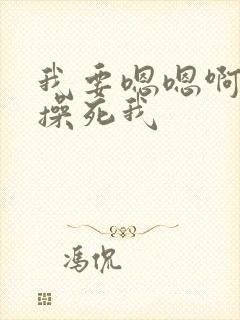 我要嗯嗯啊
操死我
冯侃